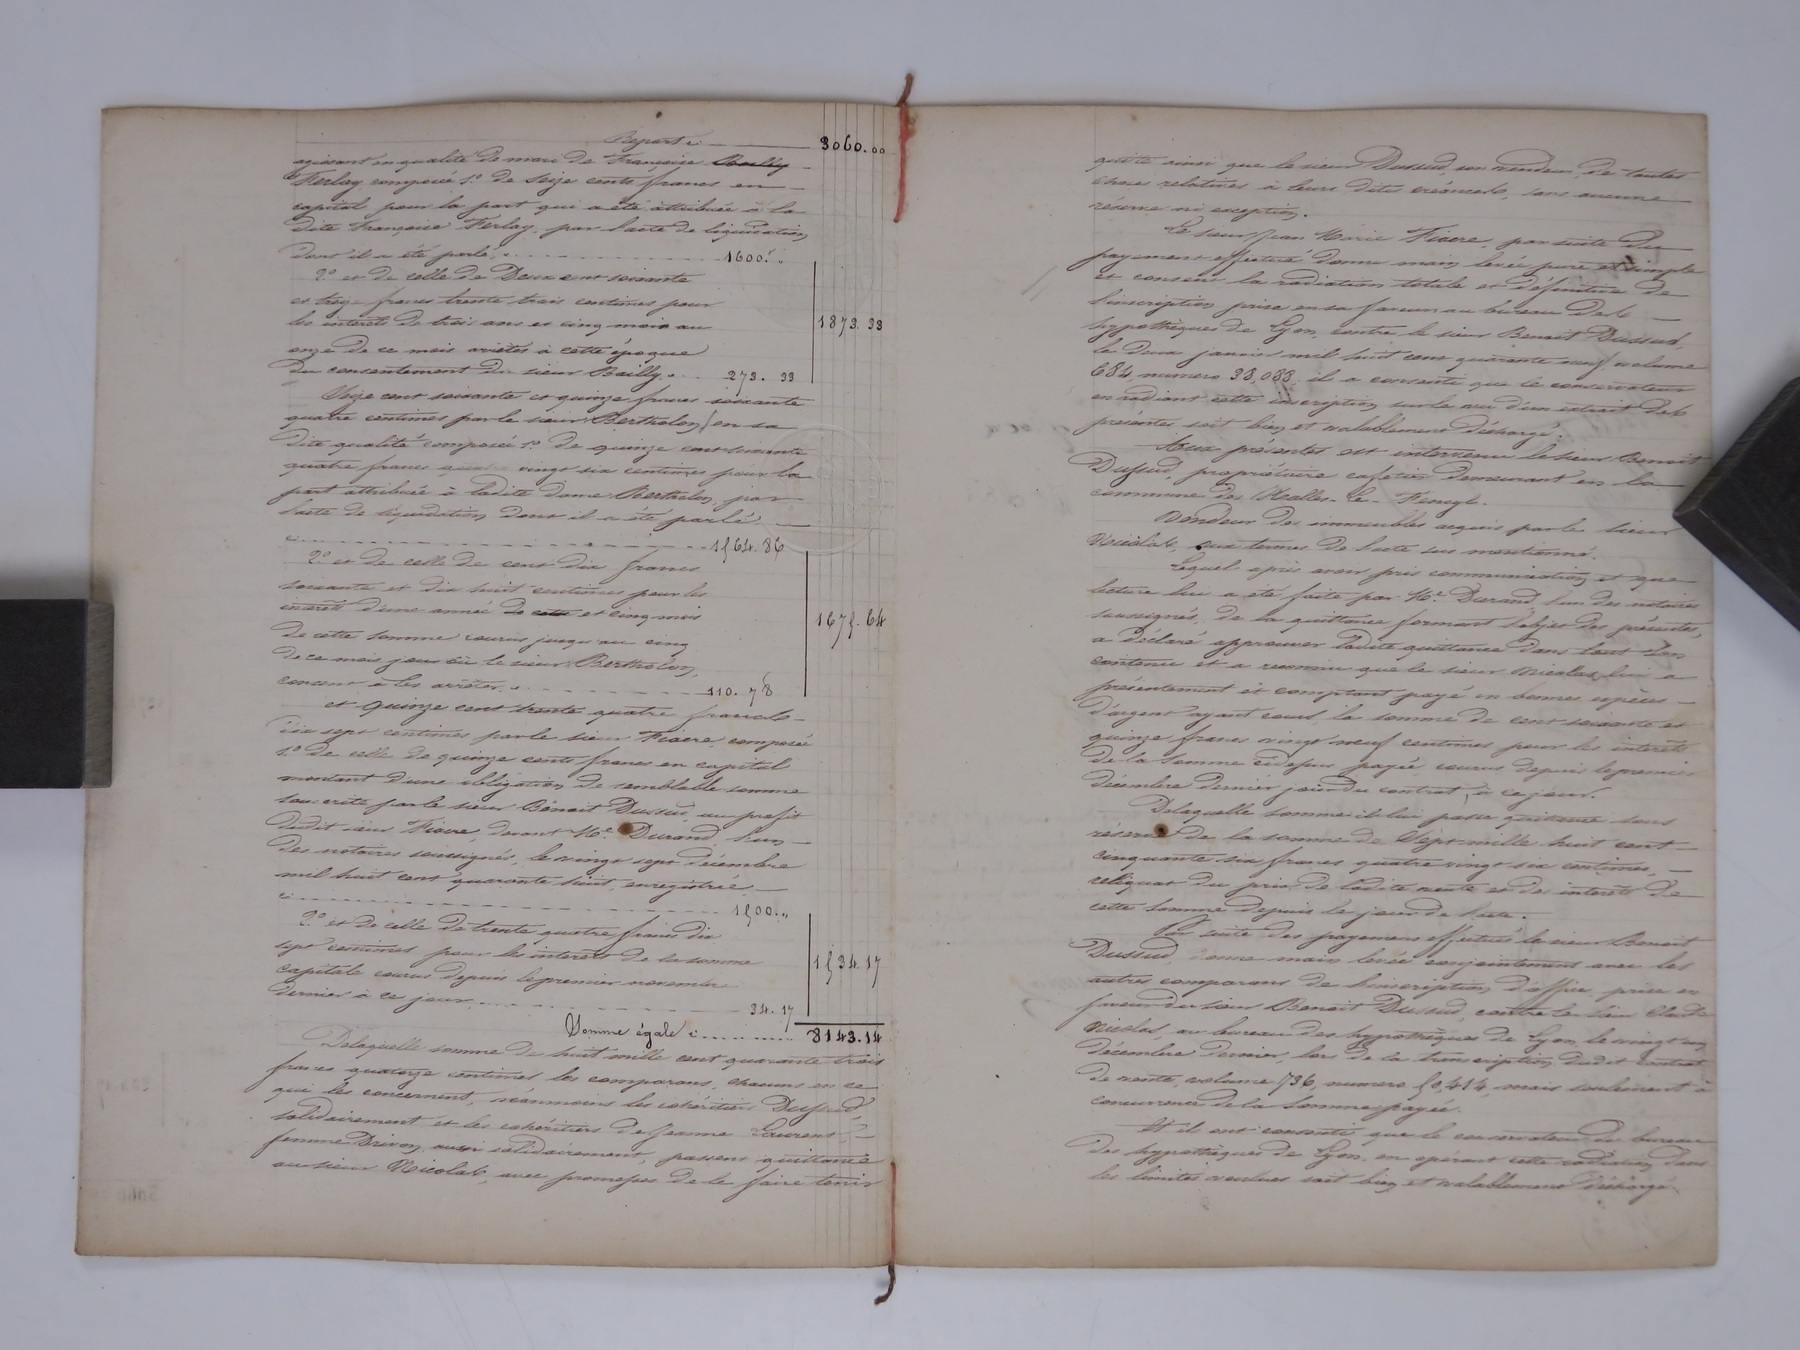 Report : 3060.00
agissant en qualité de mari de Françoise Bailly
Ferlay, composée 1° de seize cents francs en
capital pour la part qui a été attribuée à la
dite Françoise Ferlay, par l'acte de liquidation
dont il a été parlé, . 1600. "
2° et de celle de Deux cent soixante
et treize francs trente trois centimes pour
les intérêts de trois ans et cinq mois au
1873.33
onze de ce mois arrêtés à cette époque
du consentement du sieur Bailly . 273.33
Seize cent soixante et quinze francs soixante
quatre centimes par le sieur Berthelon, en sa
dite qualité composée 1° de quinze cent soixante
quatre francs quatre vingt six centimes pour la
part attribuée à ladite dame Berthelon, par
l'acte de liquidation dont il a été parlé
ci 1564.86
2° et de celle de cent dix francs
soixante et dix huit centimes pour les
intérêts d'une année et cinq mois
1675.64
de cette somme courus jusqu'au cinq
de ce mois jour où le sieur Berthelon,
consent à les arrêter . 110.78
et quinze cent trente quatre francs
dix sept centimes par le sieur Fioere, composée
1° de celle de quinze cents francs en capital
montant d'une obligation de semblable somme
souscrite par le sieur Benoit Dussud, au profit
dudit sieur Fioere, devant Me Durand, l'un
des notaires soussignés, le vingt sept décembre
mil huit cent quarante huit, enregistrée
ci 1500. "
2° et de celle de trente quatre francs dix
sept centimes pour les intérêts de la somme
1534.17
capitale courus depuis le premier novembre
dernier à ce jour 34.17
Somme égale : 8143.14
De laquelle somme de huit mille cent quarante trois
francs quatorze centimes les comparans, chacun en ce
qui les concernent, néanmoins les cohéritiers Dussud,
solidairement et les cohéritiers de Jeanne Laurent
femme Drivon, aussi solidairement, passent quittance
au sieur Nicolas, avec promesses de le faire tenir
quitte ainsi que le sieur Dussud, son vendeur, de toutes
choses relatives à leurs dites créances, sans aucune
réserve ni exception.
Le sieur Jean Marie Fioere, par suite du
payement effectué donne main levée pure et simple
et consent la radiation totale et définitive de
l'inscription prise en sa faveur au bureau des
hypothèques de Lyon, contre le sieur Benoit Dussud,
le deux janvier mil huit cent quarante neuf, volume
684, numéro 38,088, il a consenti que le conservateur
en radiant cette inscription sur le vu d'un extrait des
présentes soit bien et valablement déchargé.
Aux présentes est intervenu le sieur Benoit
Dussud, propriétaire cafetier demeurant en la
commune des Halles-le-Fenoyl.
Vendeur des immeubles acquis par le sieur
Nicolas, aux termes de l'acte sus mentionné.
Lequel après avoir pris communication, et que
lecture lui a été faite par Me Durand, l'un des notaires
soussignés, de la quittance formant l'objet des présentes,
a déclaré approuver ladite quittance dans tout son
contenu et a reconnu que le sieur Nicolas, lui a
présentement et comptant payé en bonnes espèces
d'argent ayant cours, la somme de cent soixante et
quinze francs vingt neuf centimes pour les intérêts
de la somme ci dessus payée, courus depuis le premier
décembre dernier jour du contrat, à ce jour.
De laquelle somme il lui passe quittance sous
réserve de la somme de Sept mille huit cent
cinquante six francs quatre vingt six centimes,
reliquat du prix de ladite vente et des intérêts de
cette somme depuis le jour de l'acte.
Par suite des payemens effectués le sieur Benoit
Dussud, donne main levée conjointement avec les
autres comparans de l'inscription d'office prise en
faveur du sieur Benoit Dussud, contre le sieur Claude
Nicolas, au bureau des hypothèques de Lyon, le vingt un
décembre dernier, lors de la transcription dudit contrat
de vente, volume 736, numéro 50,414, mais seulement à
concurrence de la somme payée.
Et il ont consenti que le conservateur du bureau
des hypothèques de Lyon, en opérant cette radiation dans
les limites voulues soit bien et valablement déchargé